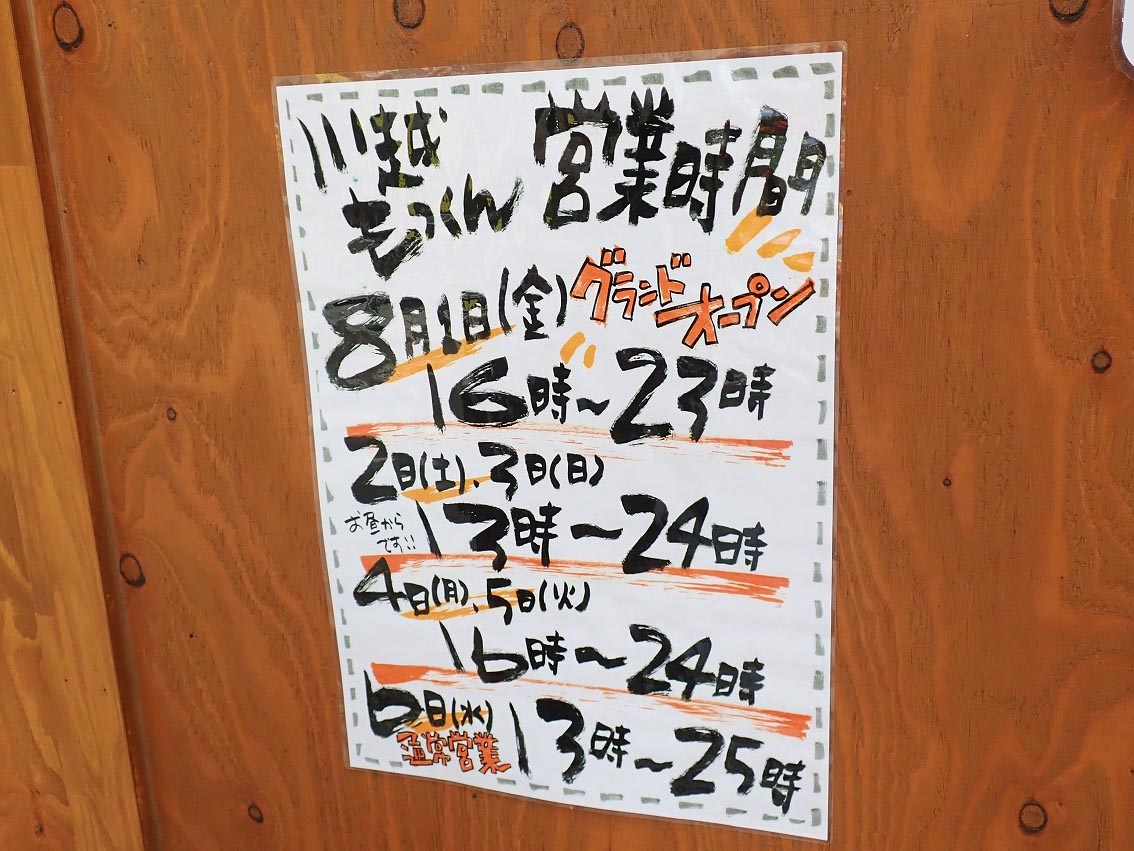 川越もっくん 営業時間
8月1日(金) グランドオープン
16時〜23時
2日(土)、3日(日)
お昼からです!! 13時〜24時
4日(月)、5日(火)
16時〜24時
6日(水) 通常営業 13時〜25時